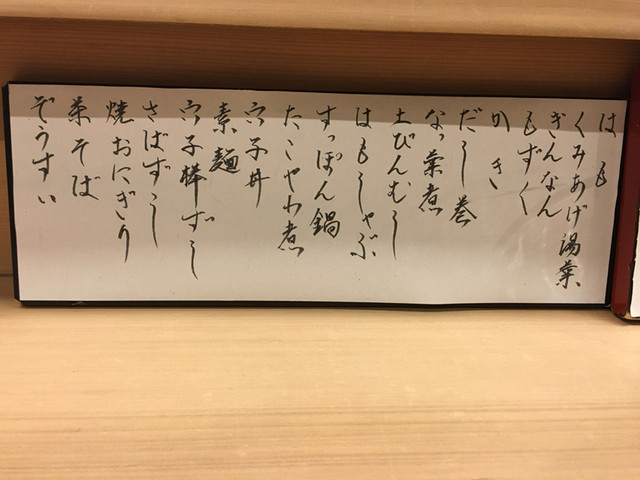 はも
くみあげ湯葉
ぎんなん
もずく
かき
だし巻
なっ葉煮
土びんむし
はもしゃぶ
すっぽん鍋
たこやわ煮
穴子丼
素麺
穴子棒ずし
さばずし
焼おにぎり
茶そば
ぞうすい